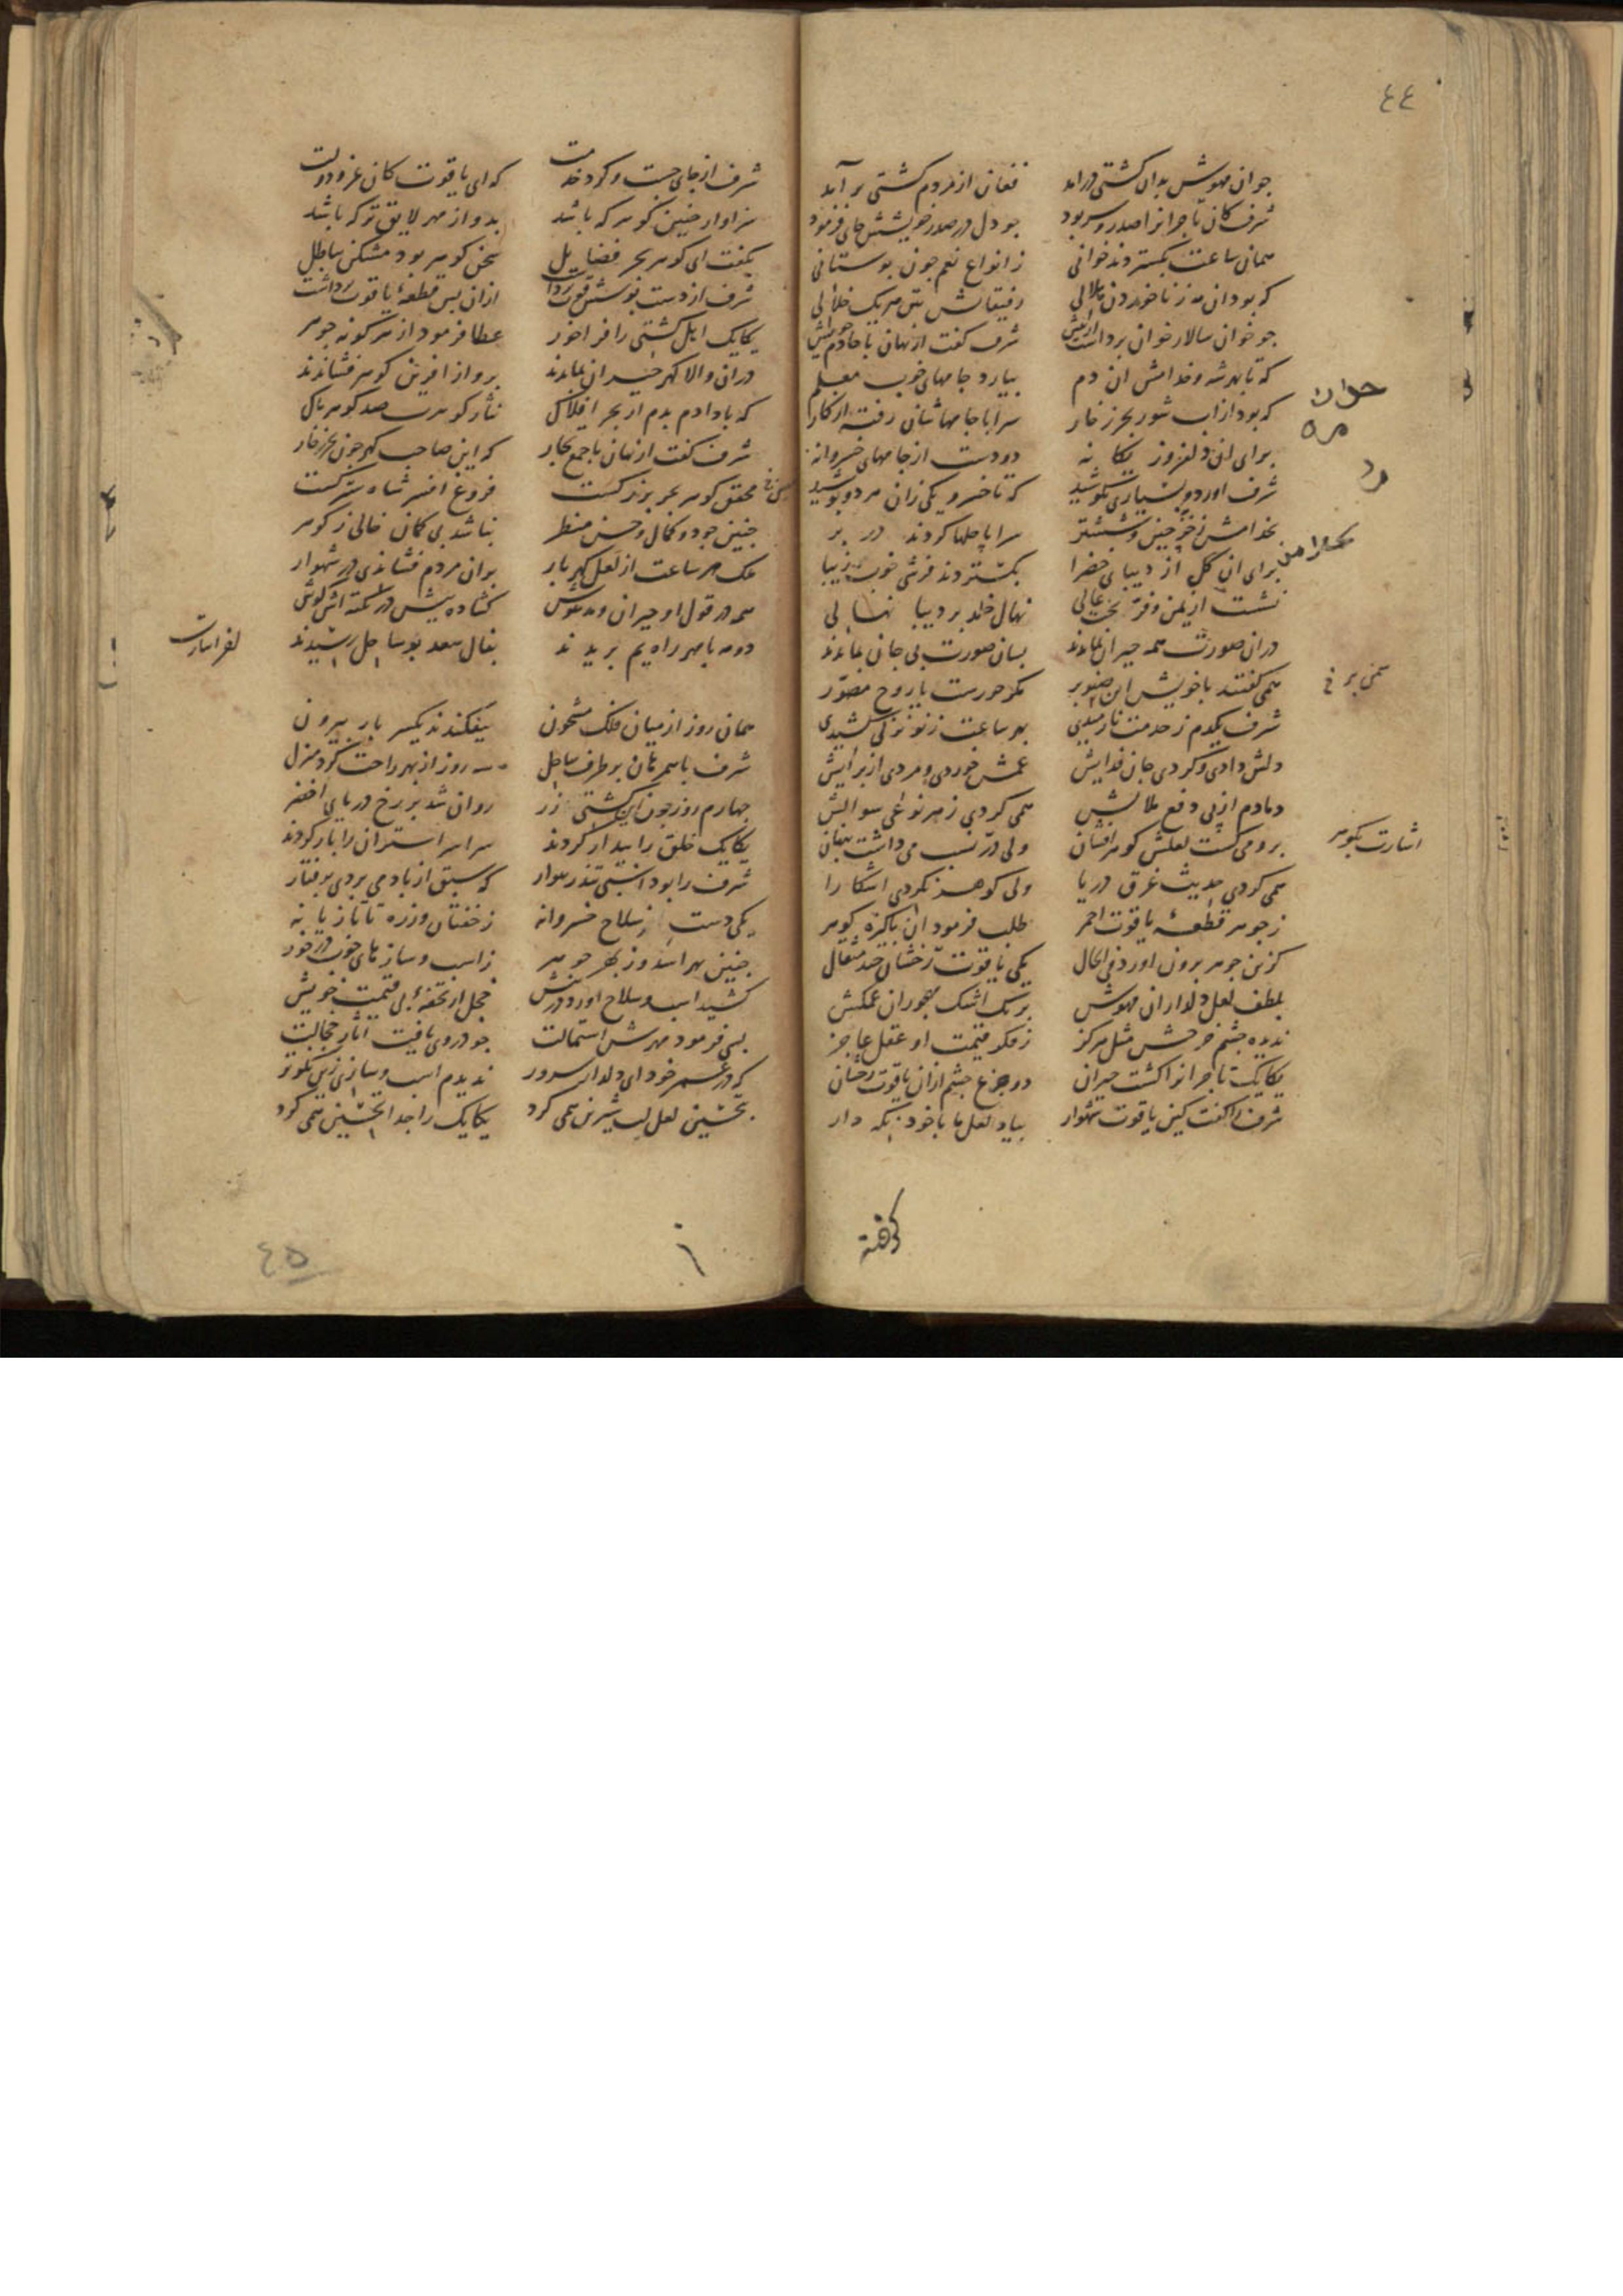 ٤٤
جوان مهوش بدان کشتی درامد فغان از مردم کشتی برآمد
شرف کان تاجرانرا صدر و سر بود جو دل در صدر خویشش جای فرمود
همان ساعت بکستردند خوانی ز انواع نعم جون بوستانی
که بود ان مه ز ناخوردن هلالی رفیقانش تن هریک خلالی
جو خوان سالار خوان برداشت شرف کفت از نهان با خادم خویش
که تا بهر شه و خدامش ان دم بیارد جامهای خوب معلم
که بود از اب شور بحر زخار سراپا جامهاشان رفته از کار
برای ان دلفروز یکانه دو دست از جامهای خسروانه
شرف اورد و بسیاری بکوشید که تا خسرو یکی زان هر دو پوشید
بخدامش ز خز جینی و ششتر سراپا حلها کردند در بر
برای ان کل از دیبای خضرا بکستردند فرشی خوب زیبا
نشست از یمن و فر بخت عالی نهال خلد بر دیبا نهالی
دران صورت همه حیران بماندند بسان صورت بی جان بماندند
همی کفتند با خویش این صنوبر مکر حورست یا روح مصور
شرف یکدم ز خدمت نارمیدی بهر ساعت ز نو نزلی کشیدی
دلش دادی و کردی جان فدایش غمش خوردی و مردی از برایش
دمادم از پی دفع ملالش همی کردی ز هر نوعی سوالش
برو می کشت لعلش کوهرافشان ولی در نسب می داشت پنهان
همی کردی حدیث غرق دریا ولی کوهر نکردی اشکارا
ز جوهر قطعهٔ یاقوت احمر طلب فرمود ان پاکیزه کوهر
کزین جوهر برون اورد فی الحال یکی یاقوت رخشان جند مثقال
بلطف لعل دلدار ان مهوش برنک اشک مهجوران غمکش
ندیده جشم جرخش مثل هرکز ز فکر قیمت او عقل عاجز
یکایک تاجرانرا کشت حیران دو جزع جشم ازان یاقوت رخشان
شرف را کفت کین یاقوت شهوار بیاد لعل ما با خود نکه دار
جوان
اشارت بکوهر
کرفته
شرف از جای جست و کرد خدمت که ای یاقوت کان عز و دولت
سزاوار جنین کوهر که باشد بدو از مهر لایق تر که باشد
بکفت ای کوهر بحر فضایل سخن کوهر بود مشکن بباطل
شرف از دست نوشش قوت برداشت ازان پس قطعهٔ یاقوت برداشت
یکایک اهل کشتی را فراخور عطا فرمود از هر کونه جوهر
دران والا کهر حیران بماندند برو از افرین کوهر فشاندند
که بادا دم بدم از بحر افلاک نثار کوهرت صد کوهر پاک
شرف کفت ان زمان با جمع تجار که این صاحب کهر جون بحر زخار
محقق کوهر بحر بزرکست فروغ افسر شاه سترکست
جنین جود و کمال و حسن منظر نباشد بی کمان خالی ز کوهر
ملک هر ساعت از لعل کهربار بران مردم فشاندی در شهوار
همه در قول او حیران و مدهوش کشاده پیش در نکته اش کوش
دو مه با مهر راه یم بریدند بفال سعد بر ساحل رسیدند
همان روز از میان فلک مشحون بیفکندند یکسر بار بیرون
شرف با همرهان بر طرف ساحل سه روز از بهر راحت کرد منزل
جهارم روز جون این کشتی زر روان شد بر رخ دریای اخضر
یکایک خلق را بیدار کردند سراسر استران را بار کردند
شرف را بود اسبی تندرهوار که سبق از باد می بردی برفتار
یکی دست از سلاح خسروانه ز خفتان و زره تا تازیانه
جنین مهر اندوز بهر جوهر ز اسب و ساز های خوب درخور
کشید اسب و سلاح اورد در پیش خجل از تحفهٔ بی قیمت خویش
بسی فرمود مهرش استمالت جو در روی یافت اثار خجالت
که در عمر خود ای دلدار سرور ندیدم اسب و سازی زین نکوتر
بتحسین لعل لب شیرین همی کرد یکایک را جدا تحسین همی کرد
٤٥